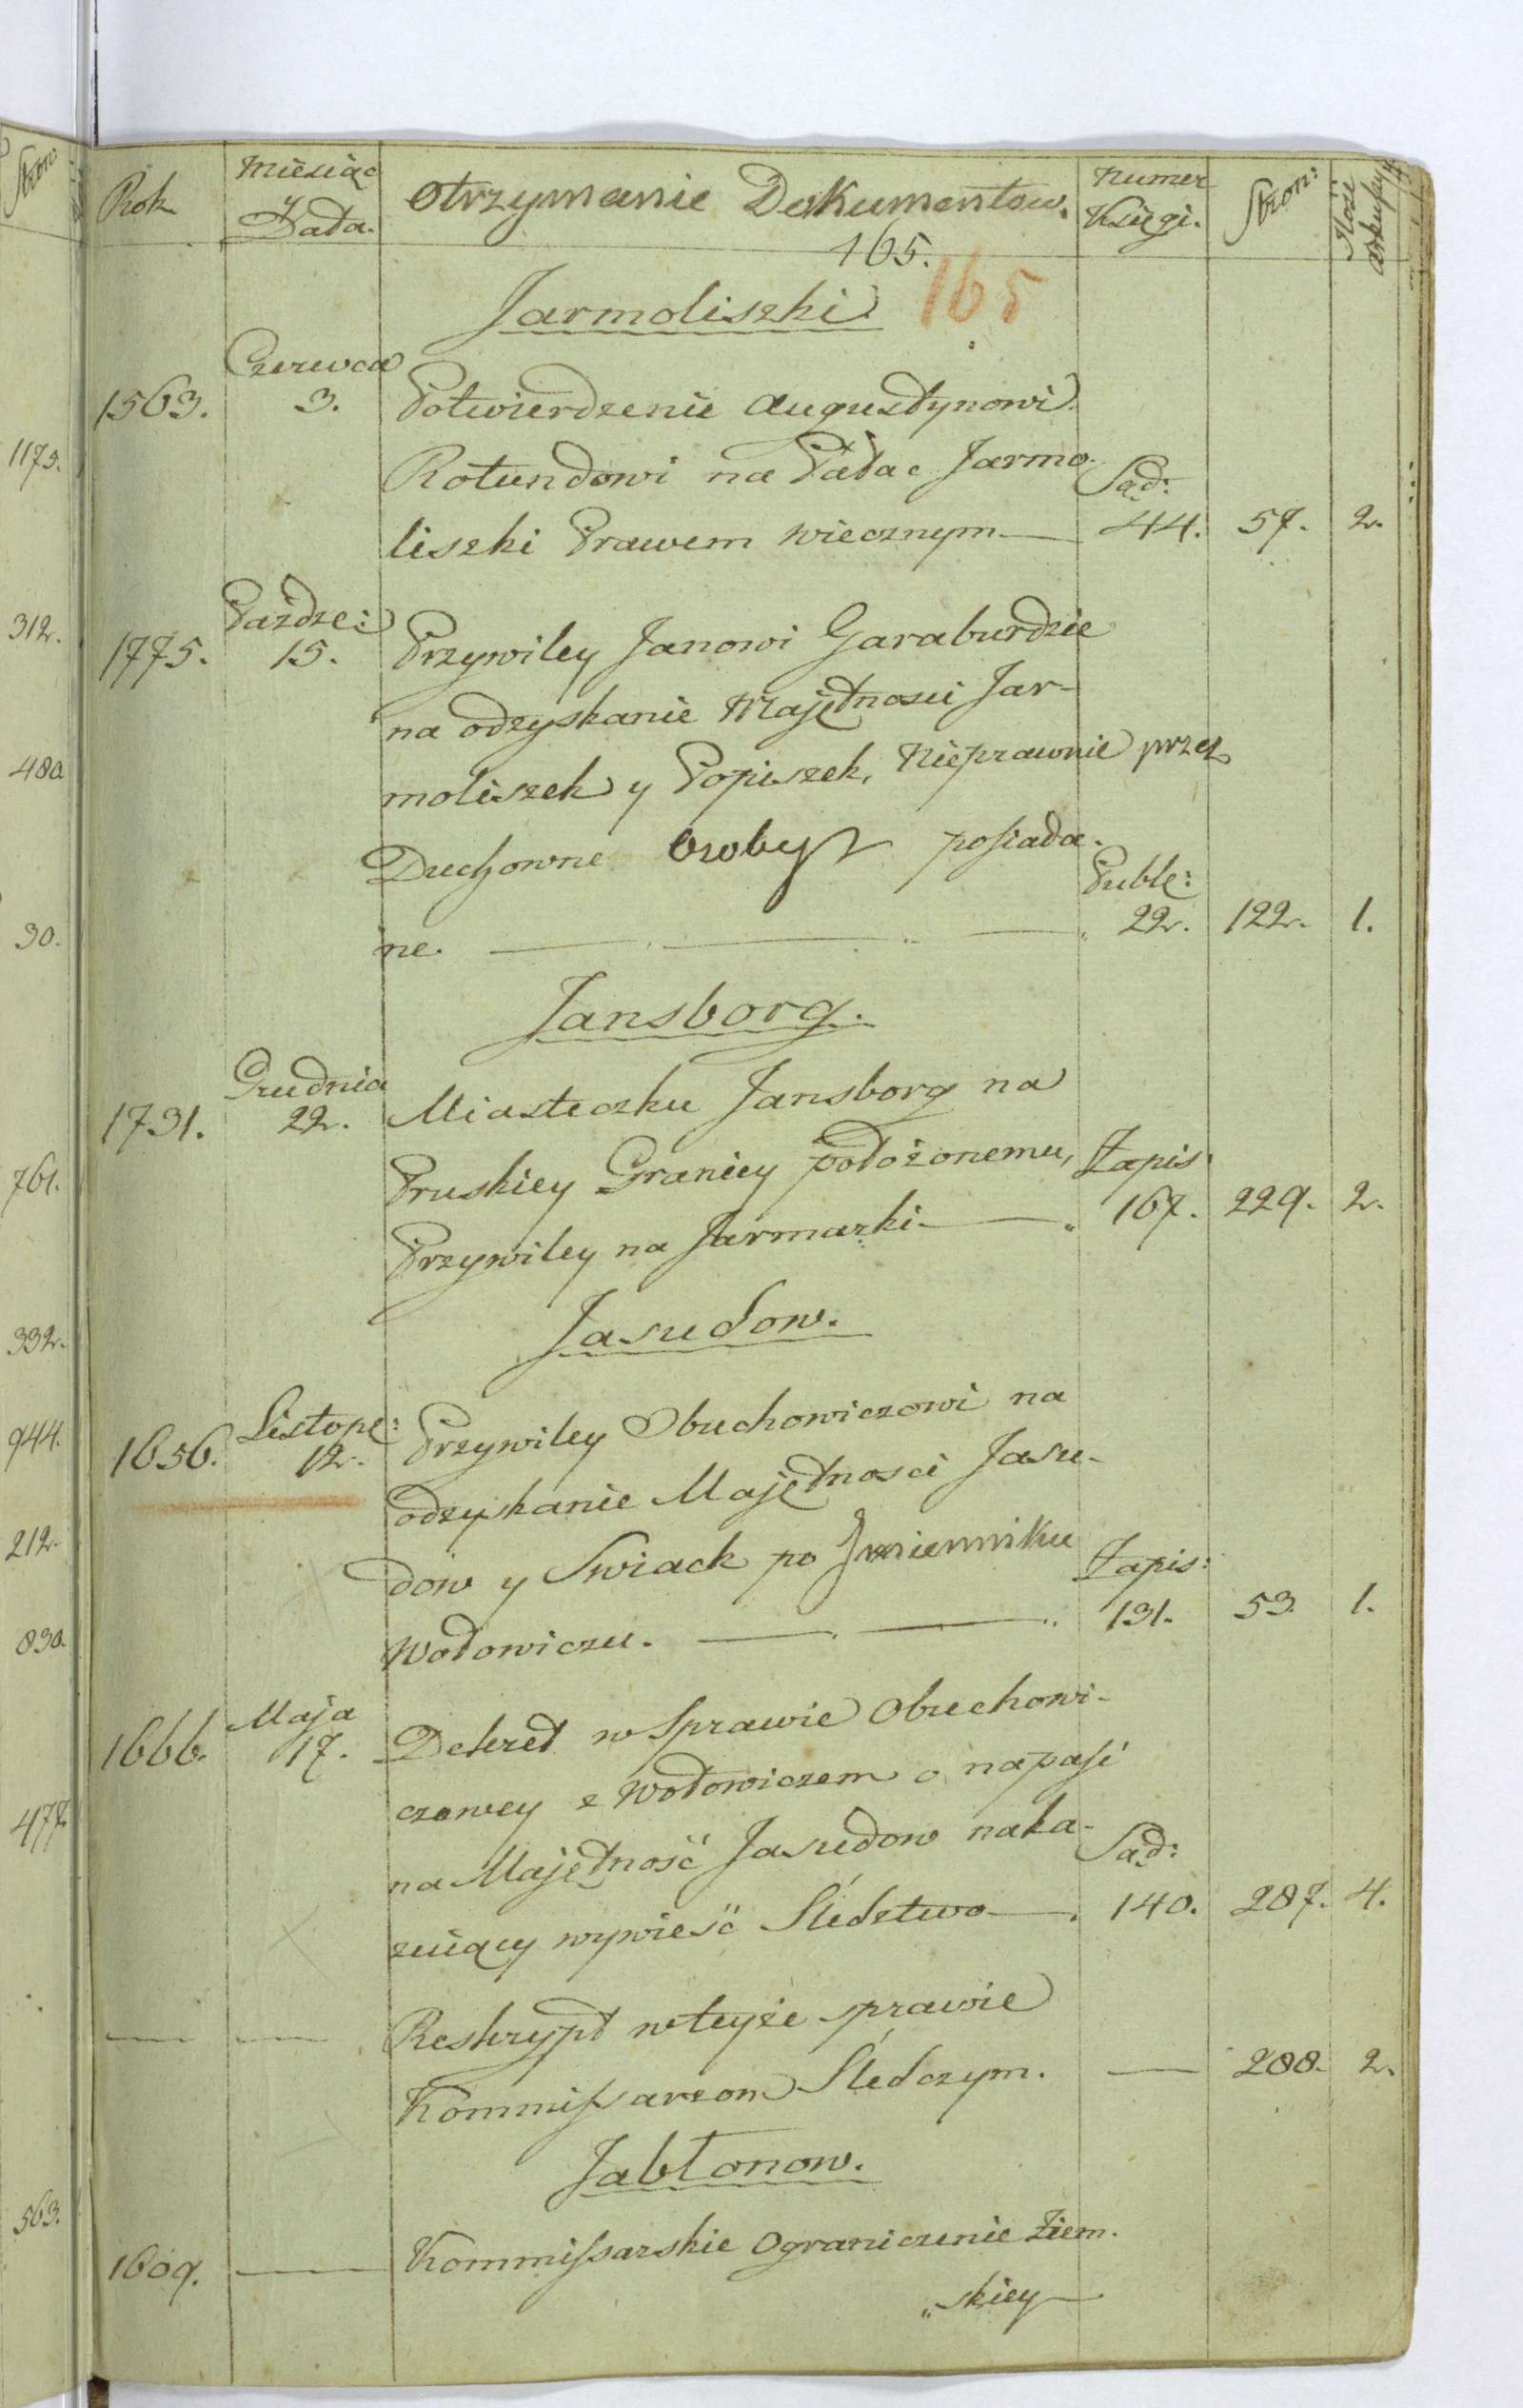 Rok Miesiąc y Data. Otrzymanie Dokumentow. Numer Księgi. Stron: Ilość arkuszy
165.
165
Jarmoliszki
Czerwca
1563. 3. Potwierdzenie Augustynowi
Rotundowi na Pałac Jarmo-
Sąd:
liszki Prawem wiecznym — 44. 57. 2.
Paźdze:
1775. 15. Przywiley Janowi Garaburdzie
na odzyskanie Majętnosci Jar-
moliszek y Popiszek, Nieprawnie przez
Duchowne Osoby posiada-
Publ:
ne. — 22. 122. 1.
Jansborg.
Grudnia
1731. 22. Miasteczku Jansborg na
Pruskiey Granicy położonemu, Zapis:
Przywiley na Jarmarki — 167. 229. 2.
Jasudow.
Listop:
1656. 12. Przywiley Obuchowiczowi na
odzyskanie Majętnosci Jasu-
dow y Swiack po Jmienniku
Zapis:
Wołowiczu. — 131. 53. 1.
Maja
1666. 17. Dekret w Sprawie Obuchowi-
czowey z Wołowiczem o napaść
na Majętność Jasudow naka-
Sąd:
zuiący wywieść Śledztwo — 140. 287. 4.
— — Reskrypt w teyże sprawie
Kommissarzom Śledczym. — 288. 2.
Jabłonow.
1609. — Kommissarskie Ograniczenie Ziem-
„skiey —
1175.
312.
480
30.
761.
332.
944.
212.
830.
477.
563.